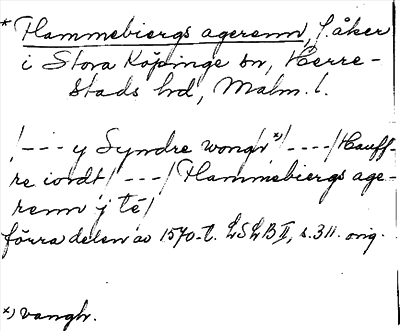 * Hammebiergs agerenn, f. åker
i Stora Köpinge sn, Herre-
stads hd, Malm. l.
/--- y Syndre wonghr x)/----/Hauff-
re iordt/---/Hammebiergs age-
renn j té/
förra delen av 1570-t. LSLB II, s. 311. orig.
x) vanghr.